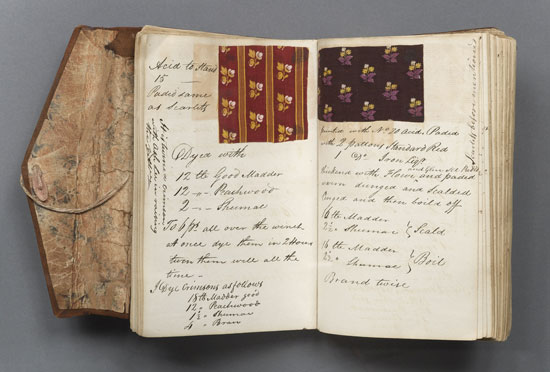 Acid to Stand
15 —
Paded same
as Scarlets
Dyed with
12 lb Good Madder
12 - " - Peachwood
2 - " - Shumac
To 6 ps. all over the winch
at once dye them in 2 Hours
turn them well all the
time -
I Dye Crimsons as follows
18 lb Madder good
12 " Peachwood
1½ " Shumac
4 " Bran
printed with No 90 Acid, Paded
with 2 pattons Standard Red
1 Do Iron Liqr
and paded
over dunged and scalded
Dunged and then boild off
6 lb Madder
2½ " Shumac } Scald
16 lb Madder
Shumac } Boil
Brand twise